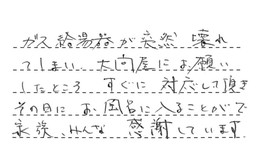 ガス給湯器が突然 壊れ
てしまい、大問屋にお願い
したところ すぐに 対応して頂き
その日に お風呂に入ることがで
家族 みんな 感謝しています